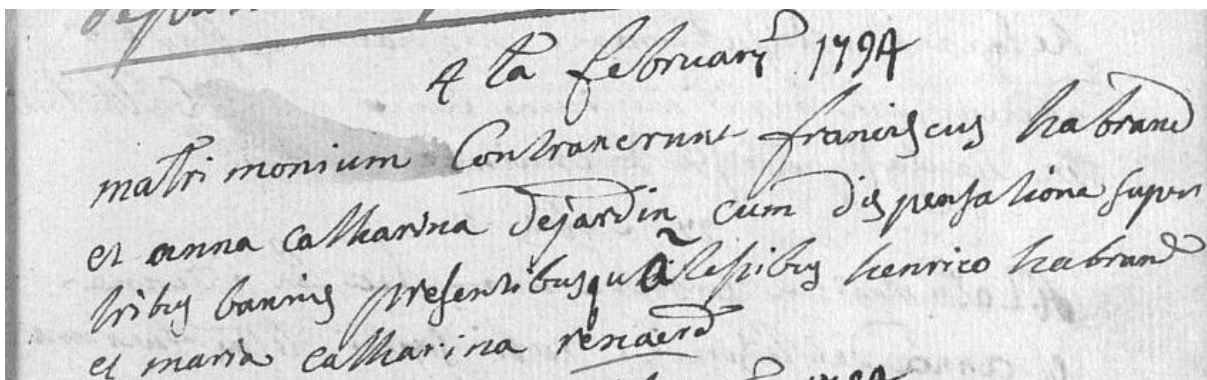 4 ta februarÿ 1794
matrimonium Contraxerunt franciscus habrand
et anna catharina dejardin cum dispensatione super
tribus bannis presentibus testibus henrico habrand
et maria catharina renaerd